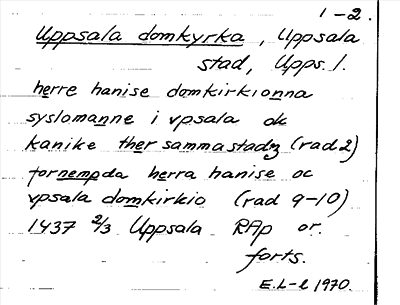 1-2.
Uppsala domkyrka, Uppsala
stad, Upps. l.
herre hanise domkirkionna
syslomanne i vpsala ok
kanike ther samma stadz (rad 2)
fornempda herra hanise oc
vpsala domkirkio (rad 9-10)
1437 2/3 Uppsala RAp or.
forts.
E.L-l 1970.